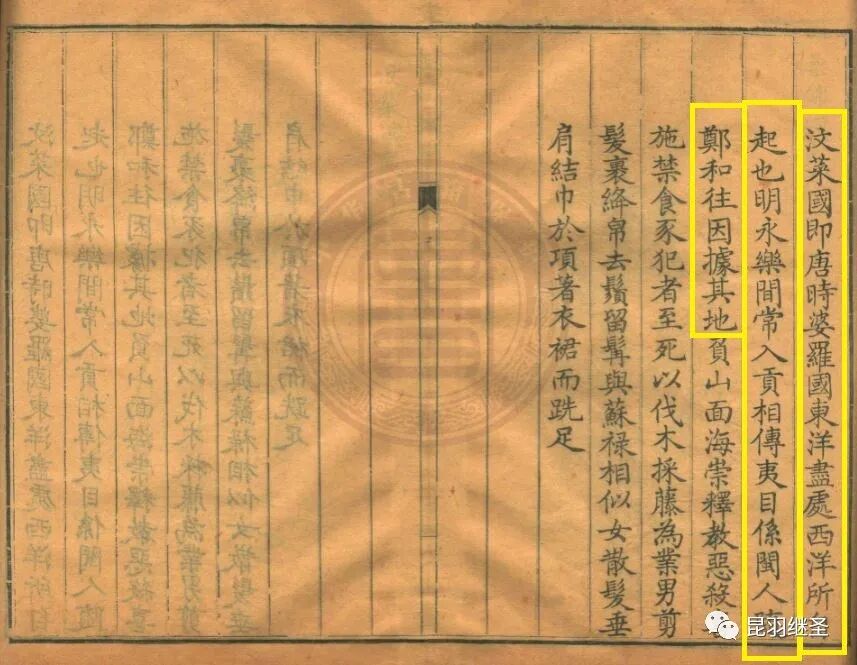 汶萊國即唐時婆羅國東洋盡處西洋所
起也明永樂間常入貢相傳夷目係閩人
鄭和往因據其地負山面海崇釋教惡殺
施禁食豕犯者至死以伐木採藤為業男剪
髮裹絳帛去鬚留髯與蘇祿相似女散髮垂
肩結巾於項著衣裙而跣足
昆羽继圣